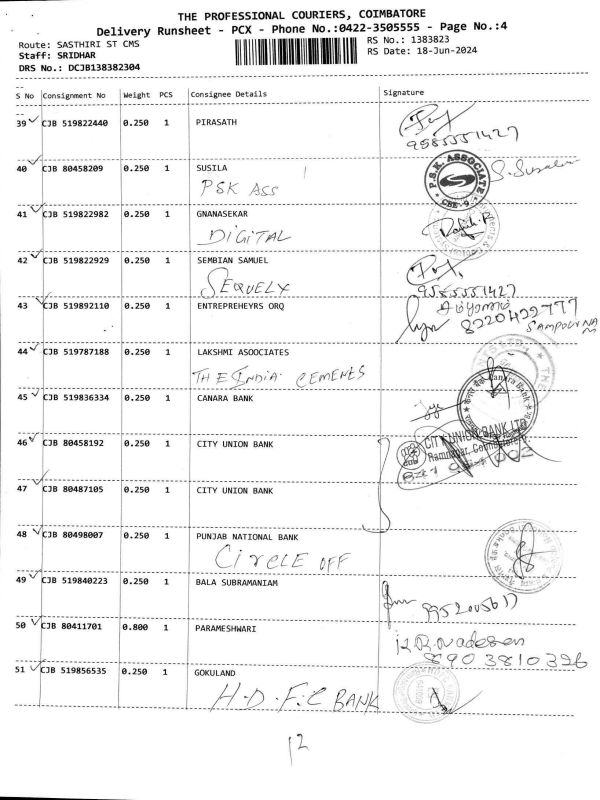 THE PROFESSIONAL COURIERS, COIMBATORE
Delivery Runsheet - PCX - Phone No.:0422-3505555 - Page No.:4
Route: SASTHIRI ST CMS
RS No.: 1383823
Staff: SRIDHAR
RS Date: 18-Jun-2024
DRS No.: DCJB138382304
S No Consignment No Weight PCS Consignee Details Signature
39 CJB 519822440 0.250 1 PIRASATH
9585551427
40 CJB 80458209 0.250 1 SUSILA
PSK ASS
P.S.K. ASSOCIATE
CBE - 9
S. Susala
41 CJB 519822982 0.250 1 GNANASEKAR
DIGITAL
42 CJB 519822929 0.250 1 SEMBIAN SAMUEL
SEQUELX
9585551427
43 CJB 519892110 0.250 1 ENTREPREHEYRS ORQ
8220422777
SAMPOURNAM
44 CJB 519787188 0.250 1 LAKSHMI ASOOCIATES
THE INDIA CEMENTS
45 CJB 519836334 0.250 1 CANARA BANK
Canara Bank
46 CJB 80458192 0.250 1 CITY UNION BANK
CITY UNION BANK LTD
Ramnagar, Coimbatore
47 CJB 80487105 0.250 1 CITY UNION BANK
48 CJB 80498007 0.250 1 PUNJAB NATIONAL BANK
CircLE OFF
49 CJB 519840223 0.250 1 BALA SUBRAMANIAM
50 CJB 80411701 0.800 1 PARAMESHWARI
8903810326
51 CJB 519856535 0.250 1 GOKULAND
H.D.F.C BANK
12